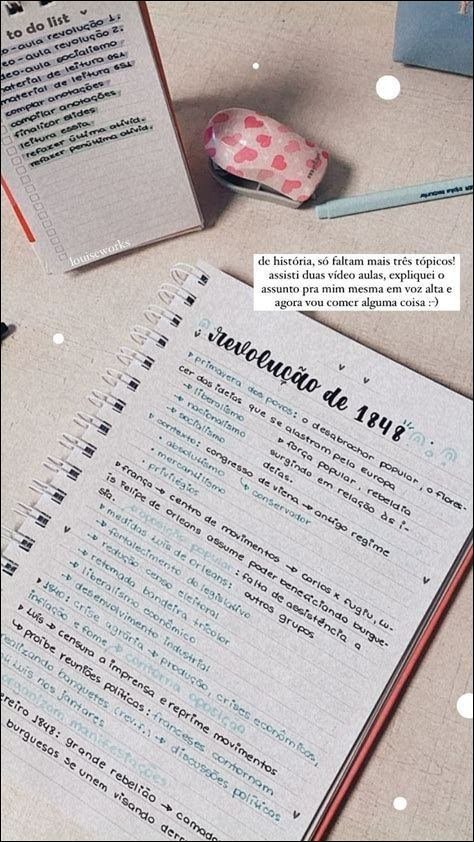 to do list
o-aula revolução 1.
eo-aula revolução 2.
deo-aula socialismo
material de leitura GS1
material de leitura GS2
compilar anotações
compilar anotações
finalizar slides
leitura essia.
refazer última ativid.
refazer penúltima ativid.
louiseworks
de história, só faltam mais três tópicos!
assisti duas vídeo aulas, expliquei o
assunto pra mim mesma em voz alta e
agora vou comer alguma coisa :-)
revolução de 1848
primavera dos povos: o desabrochar popular, o flores-
cer das ideias que se alastram pela europa
→ liberalismo
→ nacionalismo
→ socialismo
→ força popular, rebeldia
surgindo em relação às i-
deias.
contexto: congresso de viena → antigo regime
• absolutismo
• mercantilismo
• privilégios
↳ conservador
frança → centro de movimentos → carlos x fugiu, lu-
is felipe de orleans assume poder beneficiando burgue-
sia.
→ oposição popular: falta de assistência a
outros grupos
medidas luis de orleans:
→ fortalecimento do legislativo
→ redução censo eleitoral
→ retomada bandeira tricolor
→ liberalismo econômico
→ desenvolvimento industrial
1840: crise agrária → produção, crises econômicas,
inflação e fome → contorna oposição
luis → censura a imprensa e reprime movimentos
→ proibe reuniões políticas: franceses contornam
realizando banquetes (rev.:) → discussões políticas
luis nos jantares
organizam manifestações
ereiro 1848: grande rebelião → camadas
burguesas se unem visando derr